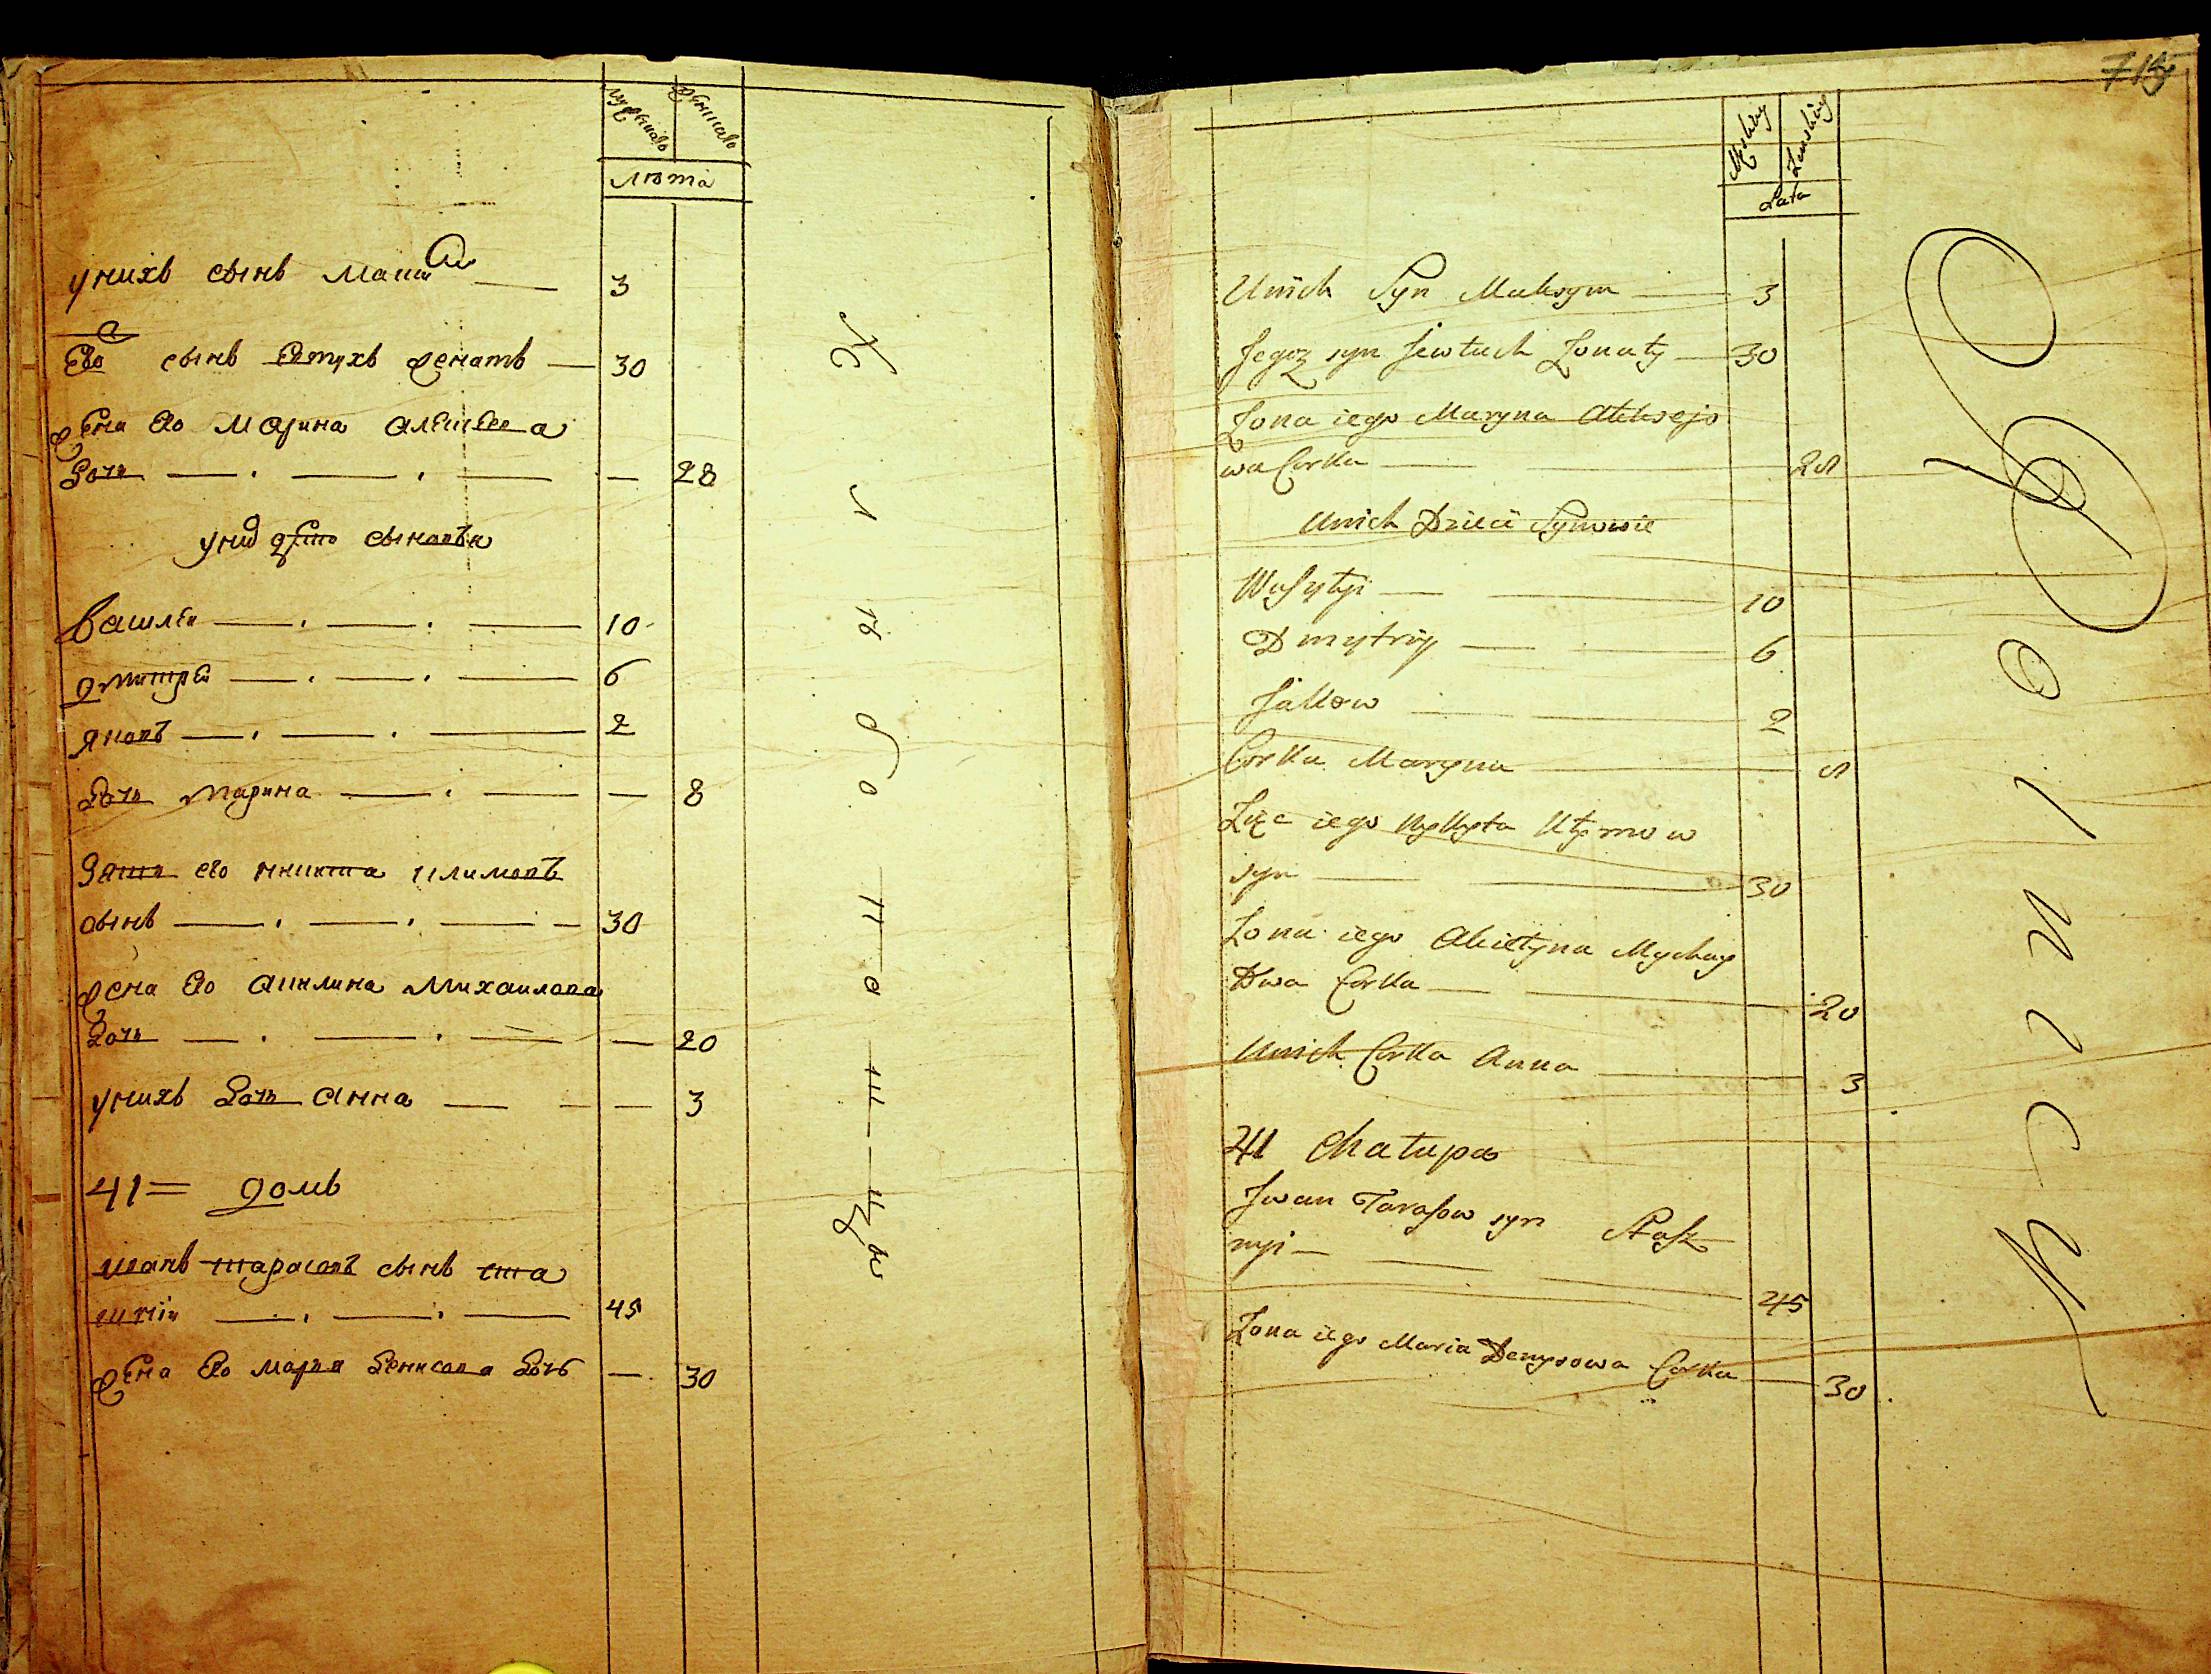 мужеско женско
люта
унихъ сынъ Макси 3
Его сынъ Евтухъ женатъ 30
жена Его Марина Алексеева
дочь 28
унид дети сыновья
василеи 10
дмитреи 6
яковъ 2
дочь марина 8
Зять его никита климовъ
сынъ 30
жена Его Акилина Михаилова
дочь 20
унихъ дочь Анна 3
41 = домъ
иванъ тарасовъ сынъ ста
шнiи 45
жена Его мария денисова дочь 30
715
Męskiey Zenskiey
Lata
Unich Syn Maksym 3
Jegoz syn Jewtuch Zonaty 30
Zona iego Maryna Aleksejo
wa Corka 28
Unich Dzieci Synowie
Wasylyi 10
Dmytriy 6
Jakow 2
Corka Maryna 8
Zięc iego Nykyta Klymow
syn 30
Zona iego Akielyna Mychay
lowa Corka 20
Unich Corka Anna 3
41 Chatupa
Jwan Tarasow syn Stasz
nyi 45
Zona iego Maria Denysowa Corka 30